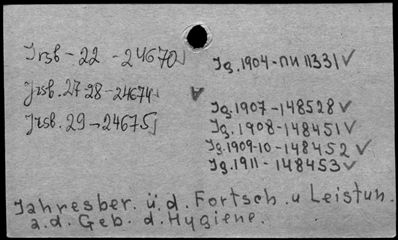 Jrsb - 22 - 24670
Jrsb. 27 28 - 24674
Jrsb. 29 - 24675
Jg. 1904 - пи 11331 ✓
Jg. 1907 - 148528 ✓
Jg. 1908 - 148451 ✓
Jg. 1909-10 - 148452 ✓
Jg. 1911 - 148453 ✓
Jahresber. ü.d. Fortsch. u Leistun.
a.d. Geb. d. Hygiene.